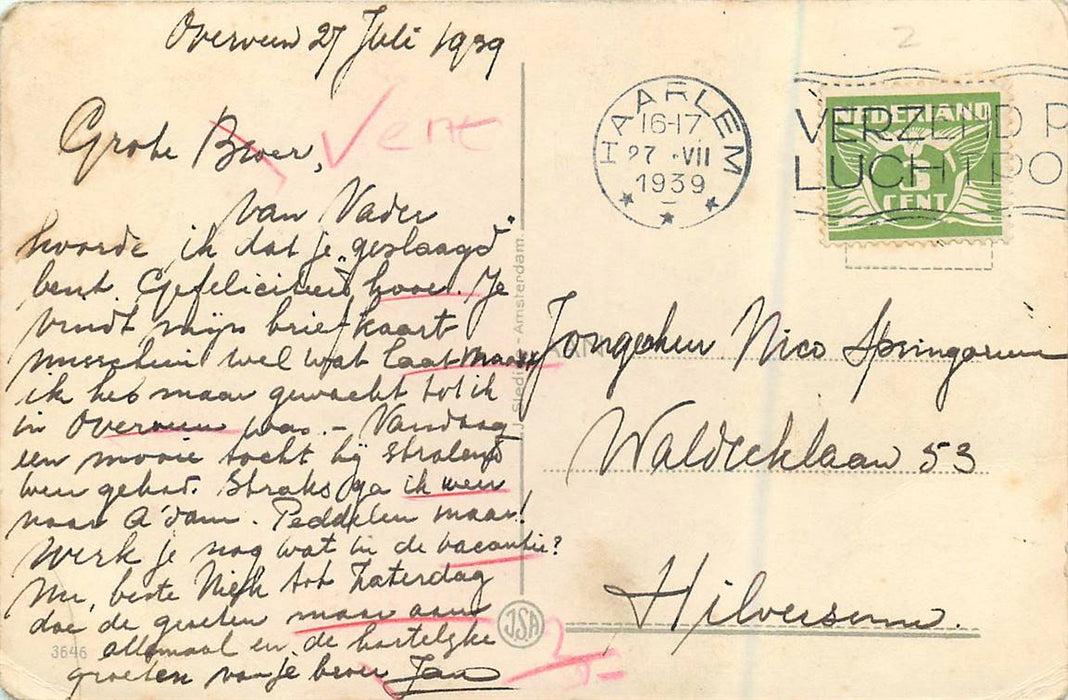 Overveen 27 Juli 1939
Grote Broer,
Vent
van Vader
hoorde ik dat je „geslaagd"
bent. Gefeliciteerd hoor. Je
vindt mijn briefkaart
misschien wel wat laat maar
ik heb maar gewacht tot ik
in Overveen was. – Vandaag
een mooie tocht bij stralend
weer gehad. Straks ga ik weer
naar A'dam. Peddelen maar!
Werk je nog wat in de vacantie?
Nu, beste Niek tot Zaterdag
doe de groeten maar aan
allemaal en de hartelijke
groeten van je broer Jan
3646
J. Sleding - Amsterdam
JSA
2
HAARLEM
16-17
27 ·VII
1939
VERZEND P
LUCHTPO
NEDERLAND
3
CENT
Jongeheer Nico Springorum
Waldecklaan 53
Hilversum.
2-